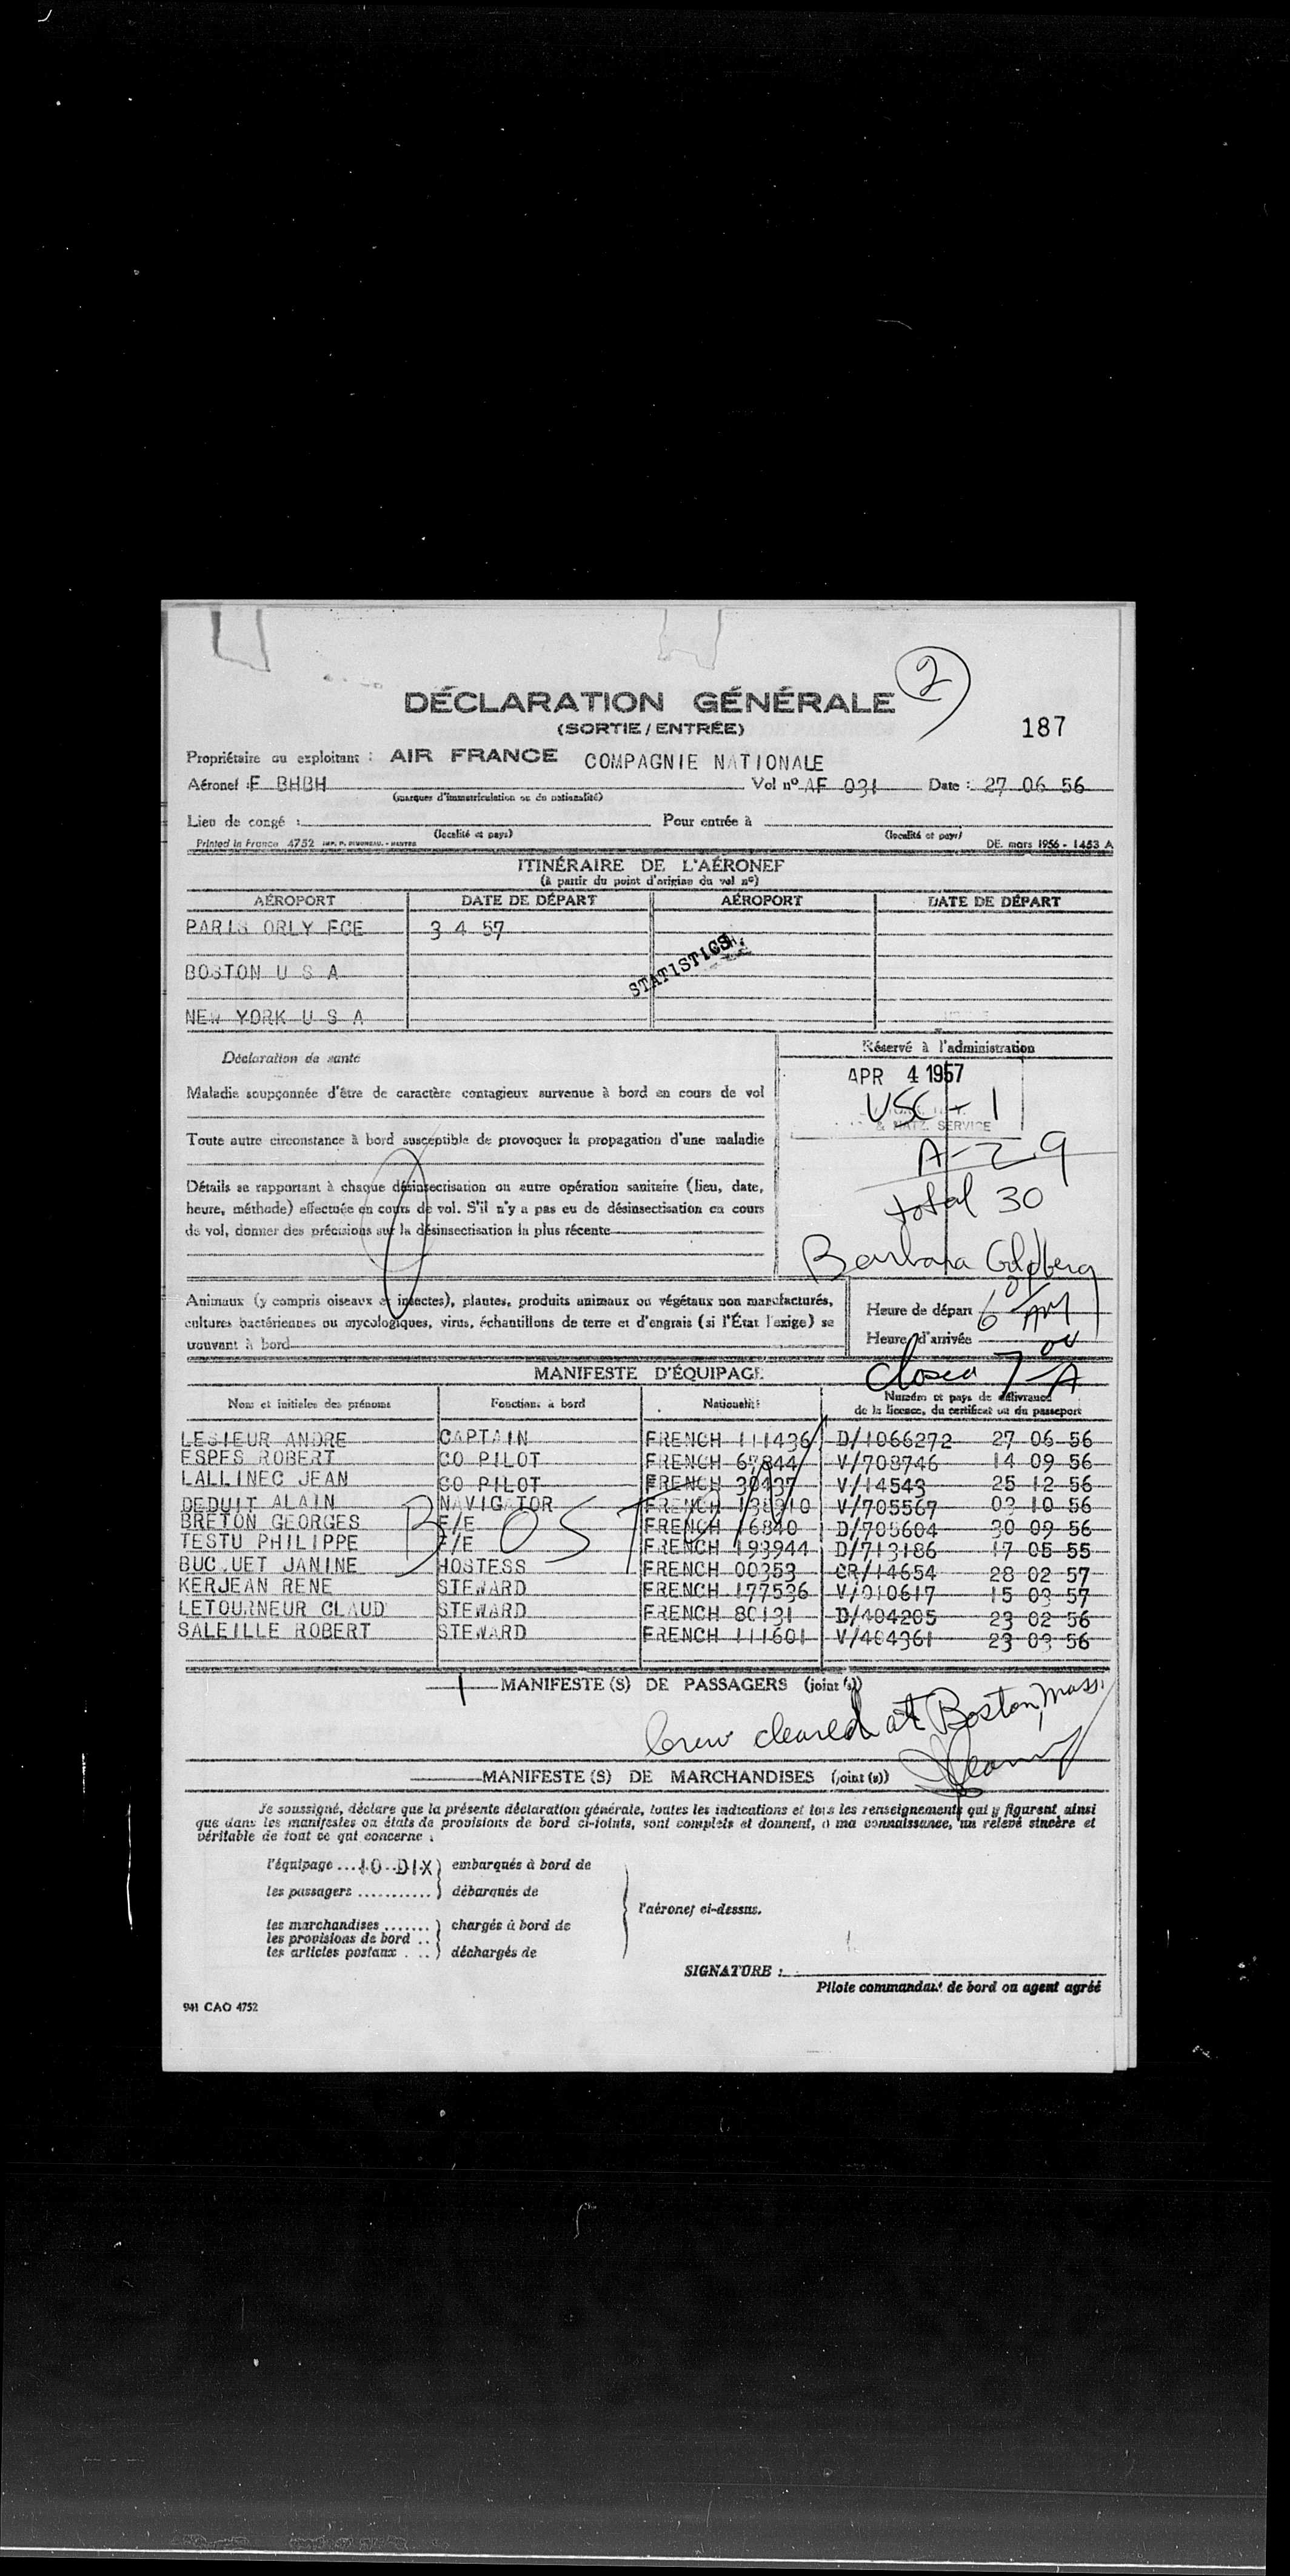 2
DÉCLARATION GÉNÉRALE
(SORTIE / ENTRÉE)
187
Propriétaire ou exploitant : AIR FRANCE COMPAGNIE NATIONALE
Aéronef : F BHBH Vol nº AF 031 Date : 27 06 56
(marques d'immatriculation ou de nationalité)
Lieu de congé : Pour entrée à
(localité et pays) (localité et pays)
Printed in France 4752 DE. mars 1956 - 1453 A
ITINÉRAIRE DE L'AÉRONEF
(à partir du point d'origine du vol nº)
AÉROPORT DATE DE DÉPART AÉROPORT DATE DE DÉPART
PARIS ORLY FCE 3 4 57
STATISTICS
BOSTON U S A
NEW YORK U S A
Déclaration de santé
Réservé à l'administration
APR 4 1957
Maladie soupçonnée d'être de caractère contagieux survenue à bord en cours de vol
USC - 1
& NATZ. SERVICE
Toute autre circonstance à bord susceptible de provoquer la propagation d'une maladie
A - 29
Détails se rapportant à chaque désinsectisation ou autre opération sanitaire (lieu, date,
heure, méthode) effectuée en cours de vol. S'il n'y a pas eu de désinsectisation en cours
de vol, donner des précisions sur la désinsectisation la plus récente
total 30
Barbara Goldberg
Animaux (y compris oiseaux et insectes), plantes, produits animaux ou végétaux non manufacturés,
cultures bactériennes ou mycologiques, virus, échantillons de terre et d'engrais (si l'État l'exige) se
trouvant à bord
Heure de départ 6 01 AM
Heure d'arrivée
closed 7 00 A
MANIFESTE D'ÉQUIPAGE
Nom et initiales des prénoms Fonctions à bord Nationalité Numéro et pays de délivrance
de la licence, du certificat ou du passeport
LESIEUR ANDRE CAPTAIN FRENCH 111436 D/1066272 27 06 56
ESPES ROBERT CO PILOT FRENCH 67844 V/708746 14 09 56
LALLINEC JEAN CO PILOT FRENCH 30437 V/14543 25 12 56
DEDUIT ALAIN NAVIGATOR FRENCH V/705567 03 10 56
BRETON GEORGES F/E FRENCH 16840 D/705604 30 09 56
TESTU PHILIPPE F/E FRENCH 193944 D/713186 17 05 55
BUCQUET JANINE HOSTESS FRENCH 00353 CR/14654 28 02 57
KERJEAN RENE STEWARD FRENCH 177536 V/010617 15 03 57
LETOURNEUR CLAUD STEWARD FRENCH 80131 D/404205 23 02 56
SALEILLE ROBERT STEWARD FRENCH 111601 V/404361 23 03 56
BOSTON
1 MANIFESTE (S) DE PASSAGERS (joint (s))
Crew cleared at Boston, Mass.
MANIFESTE (S) DE MARCHANDISES (joint (s))
Je soussigné, déclare que la présente déclaration générale, toutes les indications et tous les renseignements qui y figurent ainsi
que dans les manifestes ou états de provisions de bord ci-joints, sont complets et donnent, à ma connaissance, un relevé sincère et
véritable de tout ce qui concerne :
l'équipage .... 10 DIX ) embarqués à bord de
les passagers ........... ) débarqués de
l'aéronef ci-dessus.
les marchandises ....... ) chargés à bord de
les provisions de bord ..
les articles postaux . .. ) déchargés de
SIGNATURE :
Pilote commandant de bord ou agent agréé
941 CAO 4752